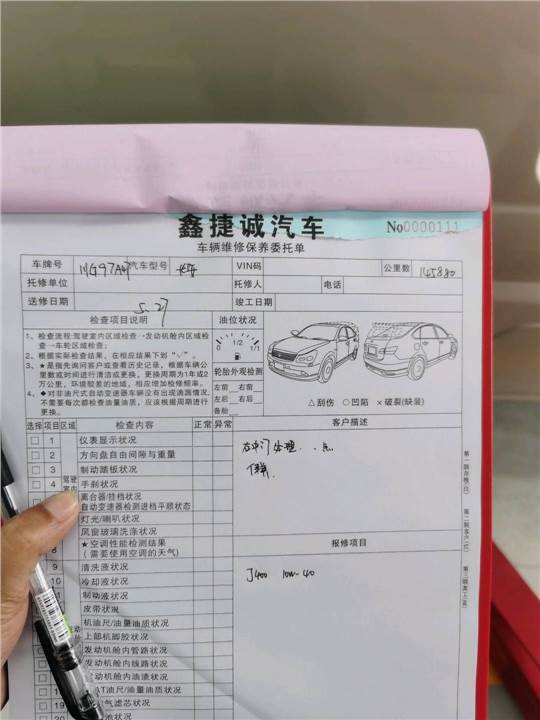 鑫捷诚汽车
No0000111
车辆维修保养委托单
车牌号 汽车型号 VIN码 公里数 145880
托修单位 托修人 电话
送修日期 5.27 竣工日期
检查项目说明 油位状况
1、检查流程:驾驶室内区域检查→发动机舱内区域检
查→车轮区域检查;
2、根据实际检查结果，在相应结果下到“√”。
3、★是指先询问客户或查看历史记录，根据车辆公
里数或时间进行清洁或更换，更换周期为1年或2
万公里，环境较差的地域，相应增加检修频率。
4、◆对非油尺式自动变速器车辆没有出现滴漏情况，
不需要每次都检查油量油质，应该根据周期进行
更换。
0 1/2 1/1
轮胎外观检测
左前 右前
左后 右后
备胎
△刮伤 ○凹陷 ×破裂(缺装)
选择 项目 区域 检查内容 正常 异常
客户描述
1 仪表显示状况
2 方向盘自由间隙与重量
3 制动踏板状况
4 手刹状况
驾驶
离合器/挂档状况
自动变速器检测进档平顺状态
灯光/喇叭状况
风窗玻璃洗涤状况
8 ★空调性能检测结果
(需要使用空调的天气)
9 清洗液状况
10 冷却液状况
制动液状况
皮带状况
机油尺/油量油质状况
上部机脚胶状况
发动机舱内管路状况
发动机舱内线路状况
发动机舱内油渍状况
AT油尺/油量油质状况
19 气滤芯状况
20 池状况
右中门处理
报修项目
J400 10W-40
第一联存根(白)
第二联客户(红)